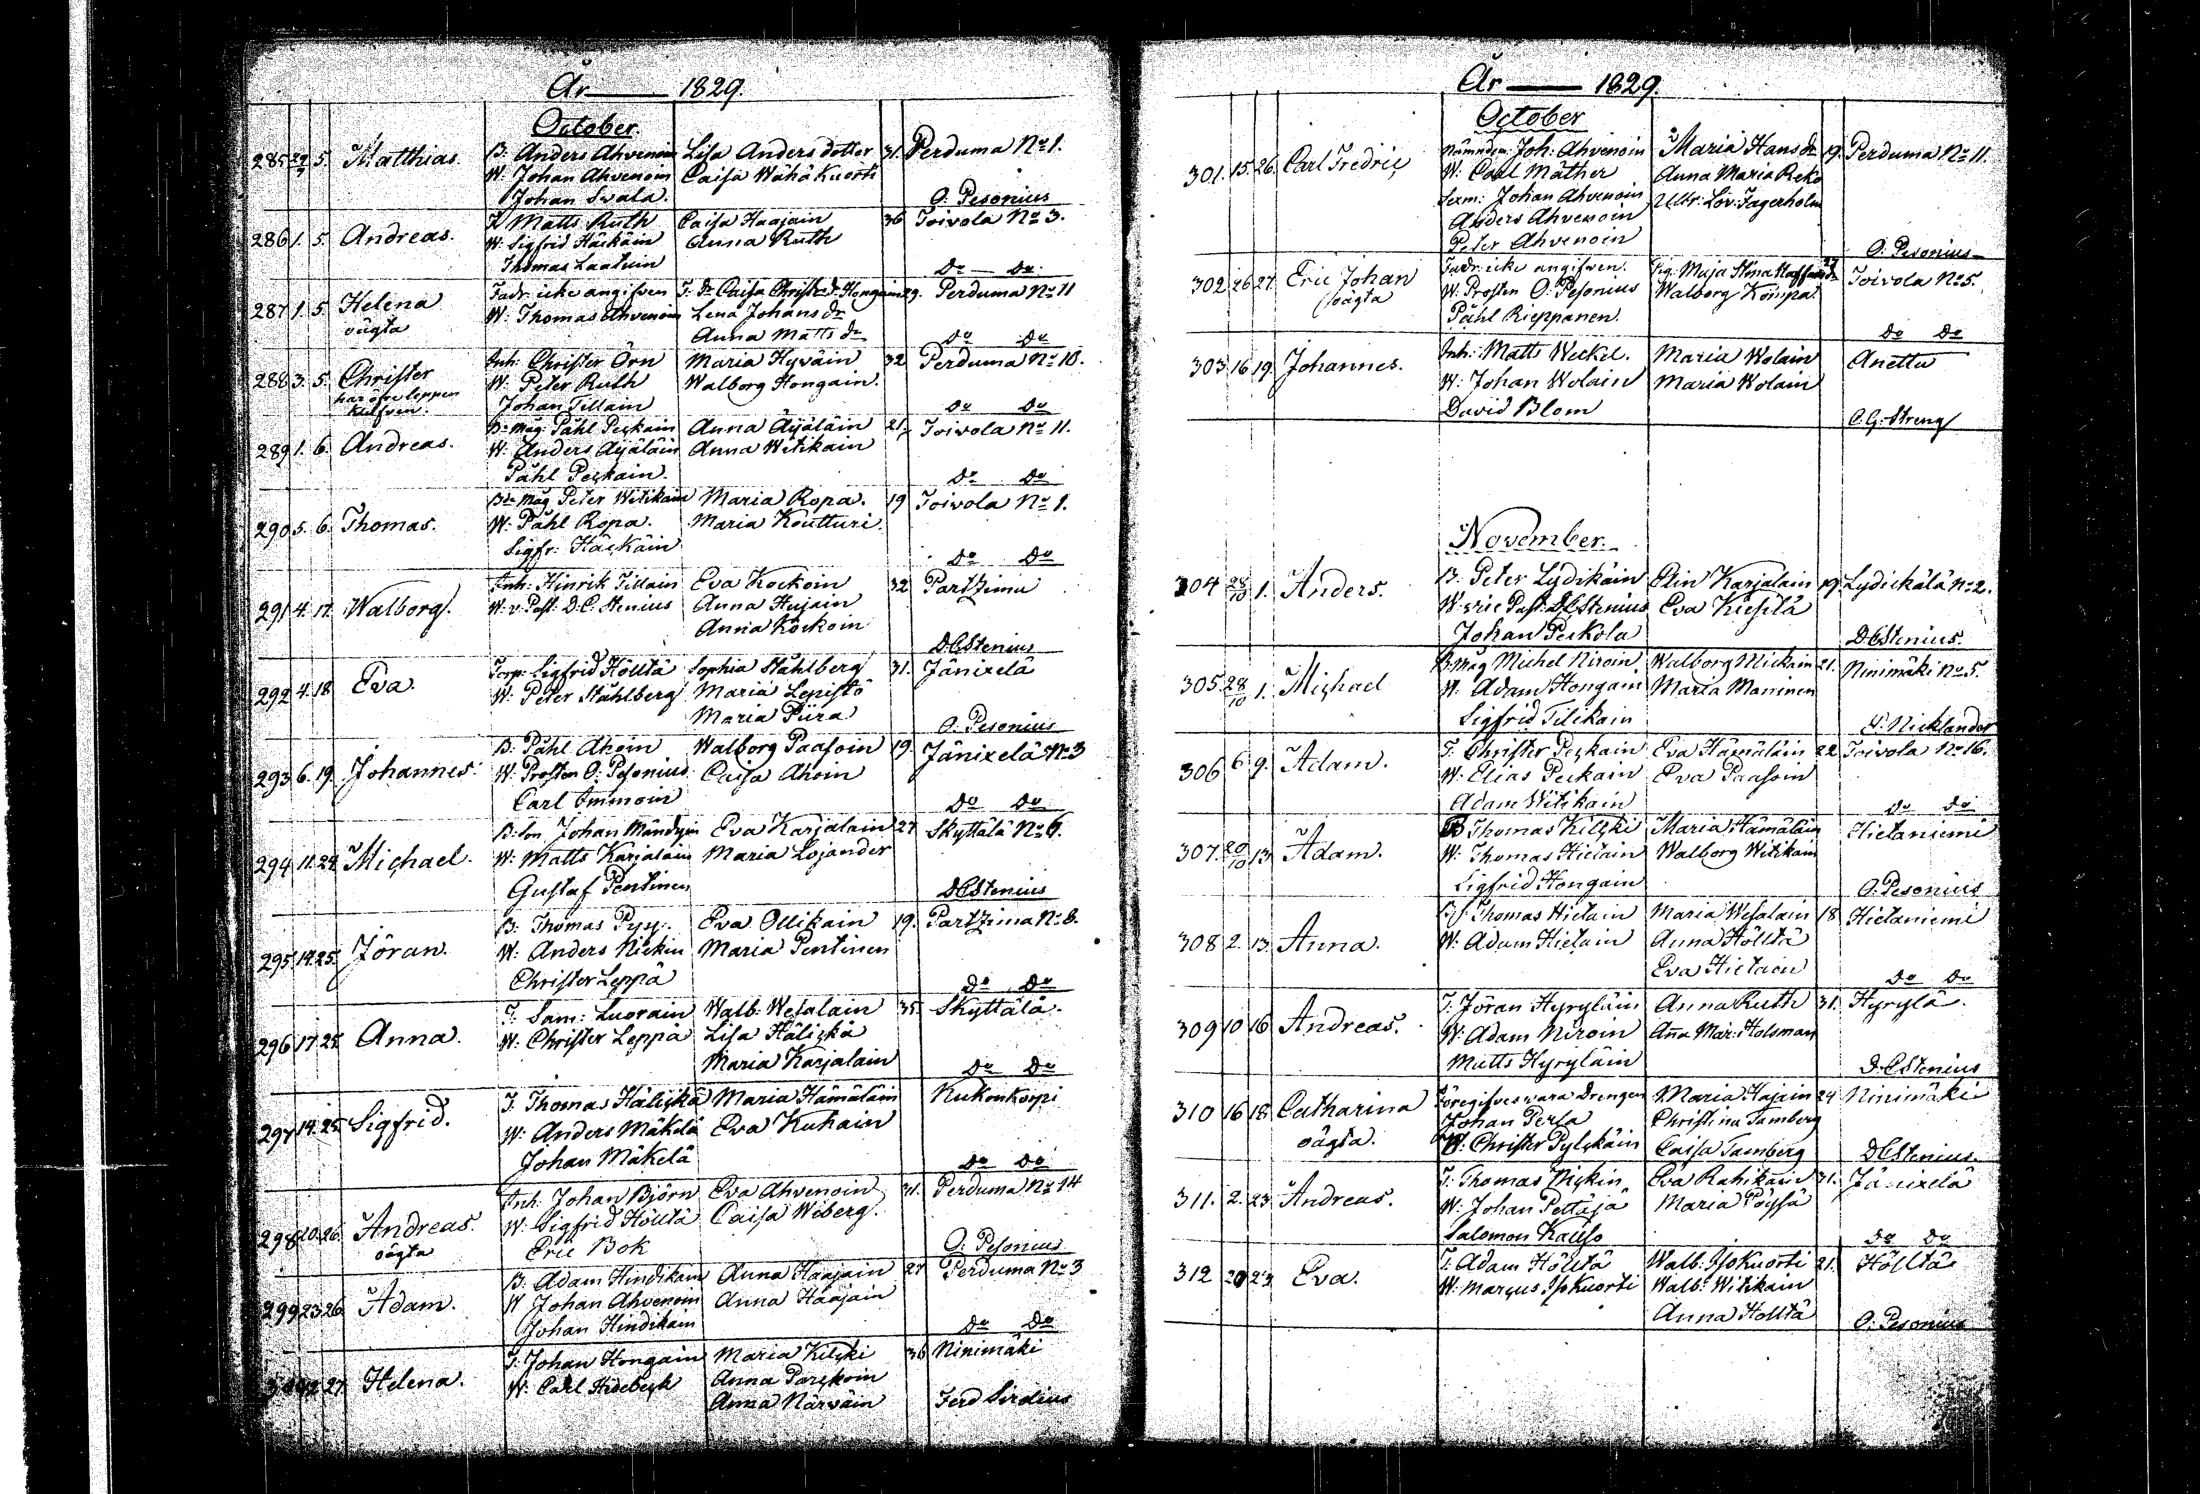 År 1829.
October.
285 29/9 5. Matthias. B. Anders Ahvenoin Lisa Anders dotter 31. Perduma No 1.
W. Johan Ahvenoin Caisa Wähäkuorti
Johan Svala. O. Pesonius
286 1. 5. Andreas. Matts Ruth Caisa Haajain 36 Toivola No 3.
W. Sigfrid Häskäin Anna Ruth
Thomas Laatuin Do Do
287 1. 5. Helena Fadr. icke angifven Caisa Christ. dr Hongain 29. Perduma No 11
oägta W. Thomas Ahvenoin Lena Johans dr
Anna Matts dr Do Do
288 3. 5. Christer Inh. Christer Örn Maria Hyväin 32 Perduma No 10.
har öfre leppen W. Peter Ruth Walborg Hongain.
klufven. Johan Tillain Do Do
289 1. 6. Andreas. Bd. Måg Påhl Peskain Anna Äijäläin 21. Toivola No 11.
W. Anders Äijäläin Anna Witikain
Påhl Peskain. Do Do
290 5. 6. Thomas. Bd. Måg Peter Witikain Maria Ropa. 19 Toivola No 1.
W. Påhl Ropa. Maria Koutturi
Sigfr. Häskäin Do Do
291 4. 17. Walborg. Inh. Hinrik Tillain Eva Kockoin 32 Partzimu
W. v. Past. D. C. Stenius Anna Hujain
Anna Kockoin DCStenius
292 4. 18. Eva. Torp. Sigfrid Hölttä Sophia Ståhlberg 31. Jänixelä
W. Peter Ståhlberg Maria Lepistö
Maria Piira O. Pesonius
293 6. 19. Johannes. B. Påhl Ahoin Walborg Paasoin 19. Jänixelä No 3
W. Prosten O. Pesonius Caisa Ahoin
Carl Immoin Do Do
294 11. 24. Michael. B. Son Johan Mändyin Eva Karjalain 27 Skyttälä No 6.
W. Matts Karjalain Maria Lojander
Gustaf Pentinen DCStenius
295 14. 25. Jöran. B. Thomas Pysy. Eva Ollikain 19. Partzima No 8.
W. Anders Nickin Maria Pentinen
Christer Leppä Do Do
296 17. 25. Anna. T. Sam. Luorain Walb. Wesalain 35 Skyttälä.
W. Christer Leppä Lisa Hälickä
Maria Karjalain Do Do
297 14. 25. Sigfrid. T. Thomas Hälickä Maria Hämäläin Kukonkorpi
W. Anders Mäkelä Eva Kuhain
Johan Mäkelä Do Do
298 20. 26. Andreas. Inh. Johan Björn Eva Ahvenoin 31. Perduma No 14
oägta W. Sigfrid Hölttä Caisa Wiberg.
Eric Bok O. Pesonius
299 23. 26. Adam. B. Adam Hindikain Anna Haajain 27 Perduma No 3
W. Johan Ahvenoin Anna Haajain
Johan Hindikain Do Do
27. Helena. T. Johan Hongain Maria Kilski 36 Ninimäki
W. Carl Hidebeck Anna Parckoin
Anna Närväin Ferd Sirelius
År 1829.
October
301. 15. 26. Carl Fredric Nämndem: Joh: Ahvenoin Maria Hans dr 19. Perduma No 11.
W. Carl Mäther Anna Maria Reko
Sexm: Johan Ahvenoin Ulbr. Lov. Jagerholm
Anders Ahvenoin
Peter Ahvenoin O. Pesonius
302 26 27. Eric Johan Fadr. icke angifven. Pig. Maja Stina 27 Toivola No 5.
oägta W. Prosten O. Pesonius Walborg Kompa.
Påhl Rieppanen. Do Do
303 16 19. Johannes. Inh: Matts Weckel. Maria Wolain Anettu
W. Johan Wolain Maria Wolain
David Blom C. G. Streng
November.
304 28/10 1. Anders. B. Peter Lydikäin Elin Karjalain 19. Lydickälä No 2.
W. vice Past. DCStenius Eva Kieselä
Johan Peskola DCStenius.
305. 28/10 1. Michael B. Måg Michel Niroin Walborg Mickain 21. Ninimäki No 5.
W. Adam Hongain Maria Manninen
Sigfrid Tilikain Nicklander
306 6 9. Adam. T. Christer Peskain Eva Hämäläin 22. Toivola No 16.
W. Elias Peskain Eva Paasoin
Adam Witikain Do Do
307. 20/10 13. Adam. B Thomas Kilski Maria Hämäläin Hietaniemi
W. Thomas Hietain Walborg Witikain
Sigfrid Hongain O. Pesonius
308 2. 13. Anna. Thomas Hietain Maria Wesalain 18 Hietaniemi
W. Adam Hietain Anna Hölttä
Eva Hietain Do Do
309 10 16 Andreas. T. Jöran Hyryläin Anna Ruth 31. Hyrylä.
W. Adam Niroin Anna Mar. Holsman
Matts Hyryläin D. C. Stenius
310 16 18. Catharina Föregifves vara Drengen Maria Hajain 24 Ninimäki
Johan Persa Christina Tamberg
oägta. W. Christer Pylckäin Caisa Tamberg DCStenius.
311. 2. 23 Andreas. T. Thomas Nickin Eva Rahikain 31. Jänixelä
W. Johan Pettäjä Maria Pöysä
Salomon Kaiso Do Do
312 20 23 Eva. T. Adam Hölttä Walb. Isokuorti 21. Hölttä
W. Marcus Isokuorti Walb. Witikain
Anna Hölttä O. Pesonius